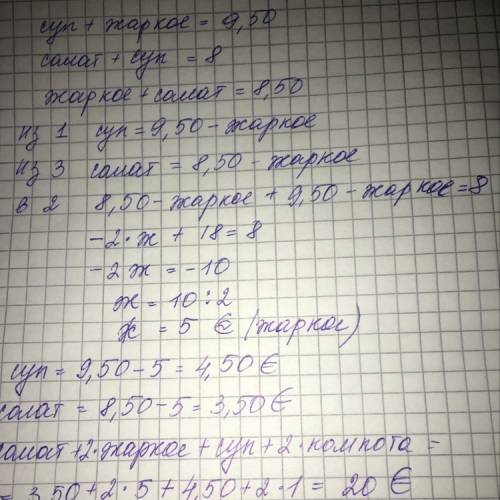 суп + жаркое = 9,50
салат + суп = 8
жаркое + салат = 8,50
из 1 суп = 9,50 - жаркое
из 3 салат = 8,50 - жаркое
в 2 8,50 - жаркое + 9,50 - жаркое = 8
-2·ж + 18 = 8
-2ж = -10
ж = 10 : 2
ж = 5 € (жаркое)
суп = 9,50 - 5 = 4,50 €
салат = 8,50 - 5 = 3,50 €
салат + 2·жаркое + суп + 2·компота =
= 3,50 + 2·5 + 4,50 + 2·1 = 20 €